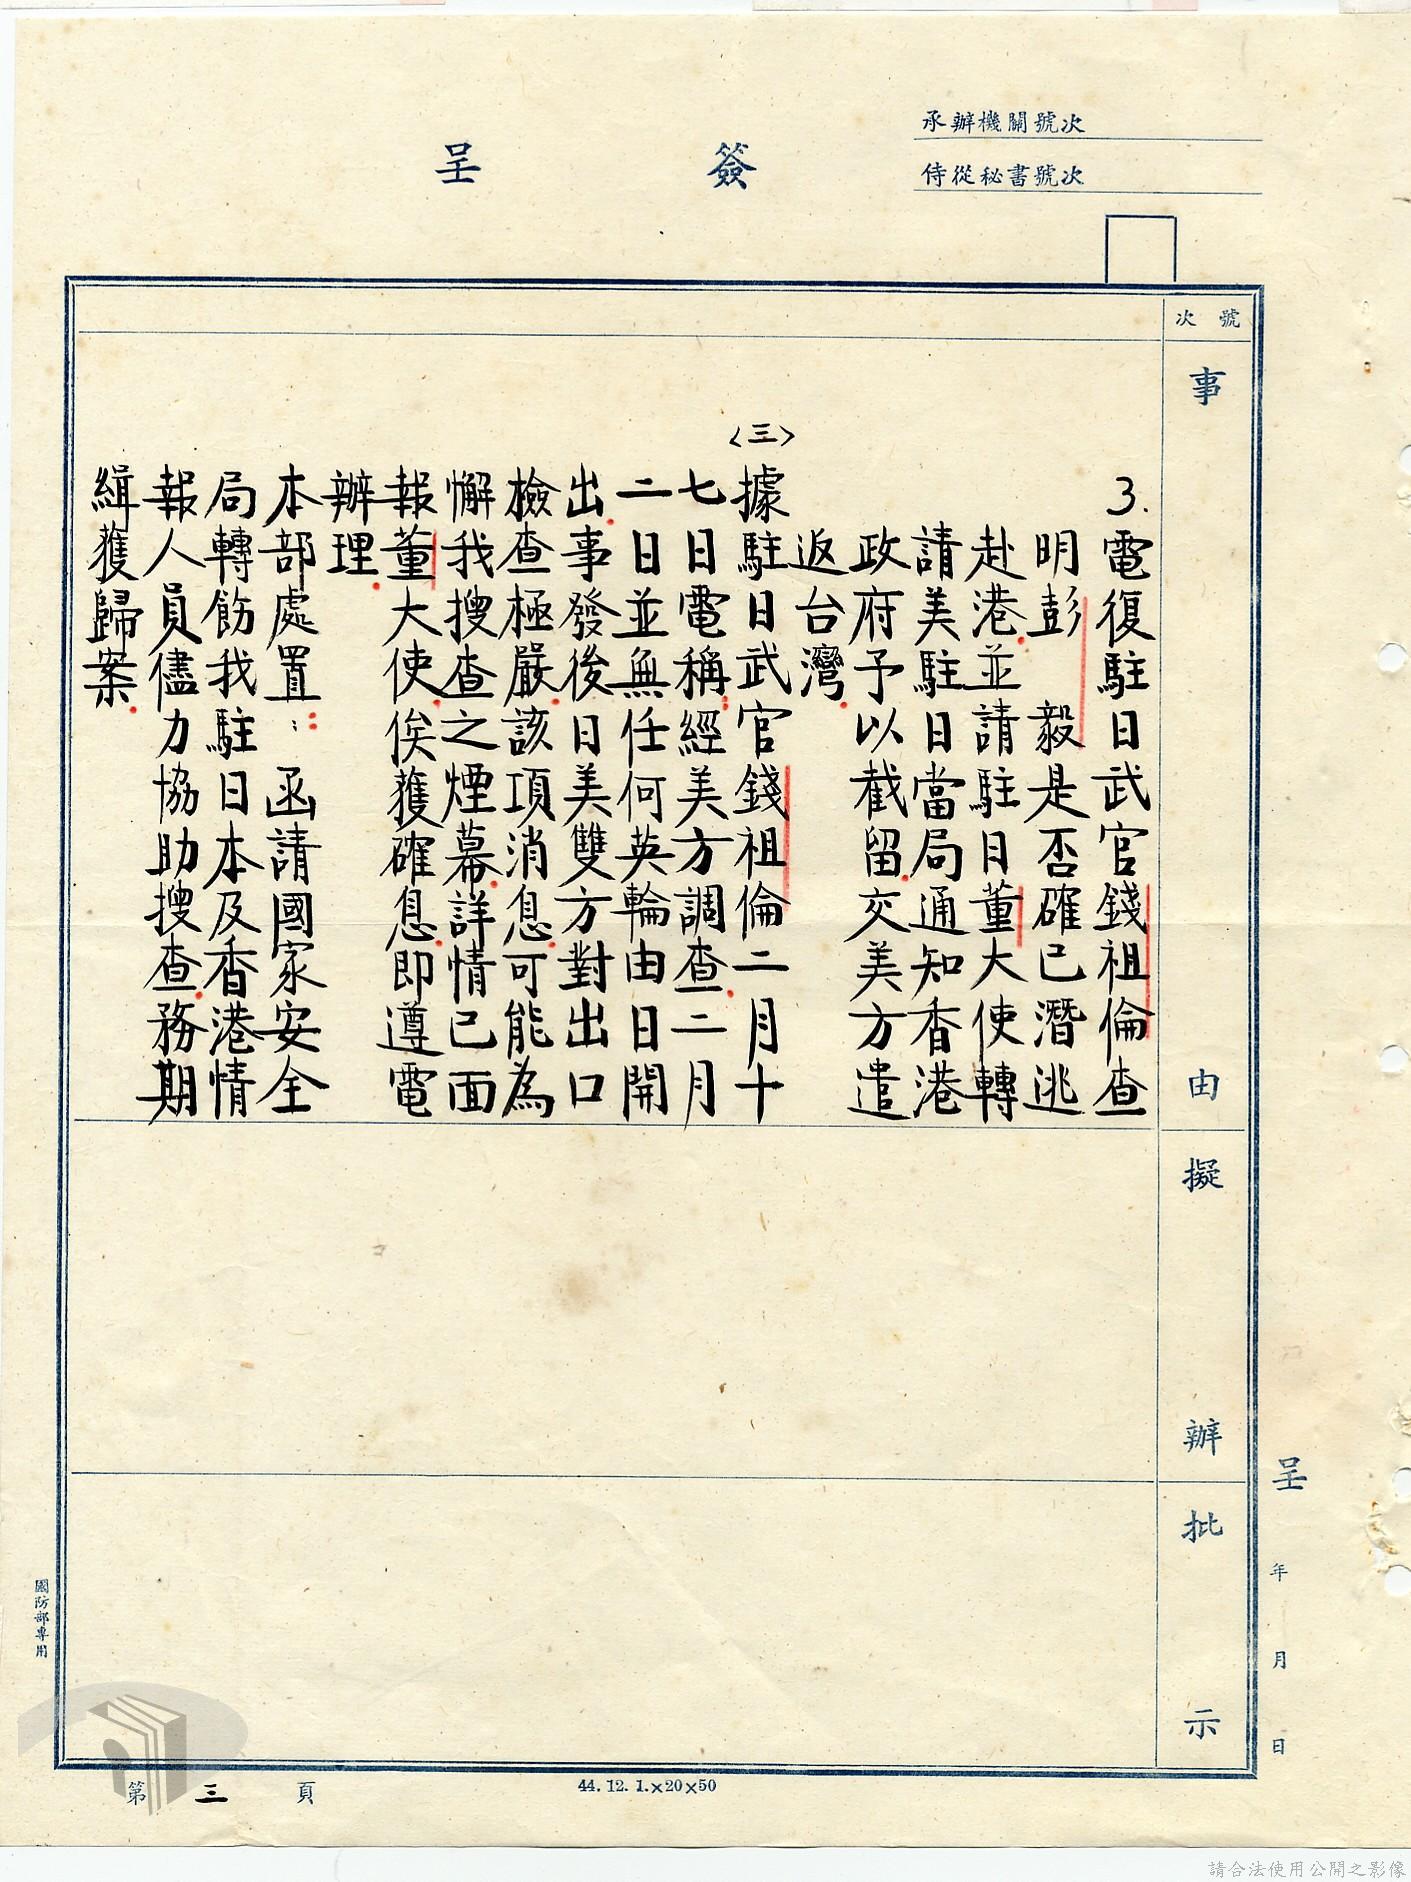 承辦機關號次
侍從秘書號次
簽呈
號次
事由
擬辦
批示
3.電復駐日武官錢祖倫查
明彭 毅是否確已潛逃
赴港.並請駐日董大使轉
請美駐日當局通知香港
政府予以截留.交美方遣
返台灣.
<三>據駐日武官錢祖倫二月十
七日電稱:經美方調查.二月
二日並無任何英輪由日開
出.事發後日美雙方對出口
檢查極嚴.該項消息.可能為
懈我搜查之煙幕.詳情已面
報董大使.俟獲確息.即遵電
辦理.
本部處置:函請國家安全
局轉飭我駐日本及香港情
報人員儘力協助搜查.務期
緝獲歸案.
呈 年 月 日
國防部專用
第三頁
44.12.1.×20×50
請合法使用公開之影像